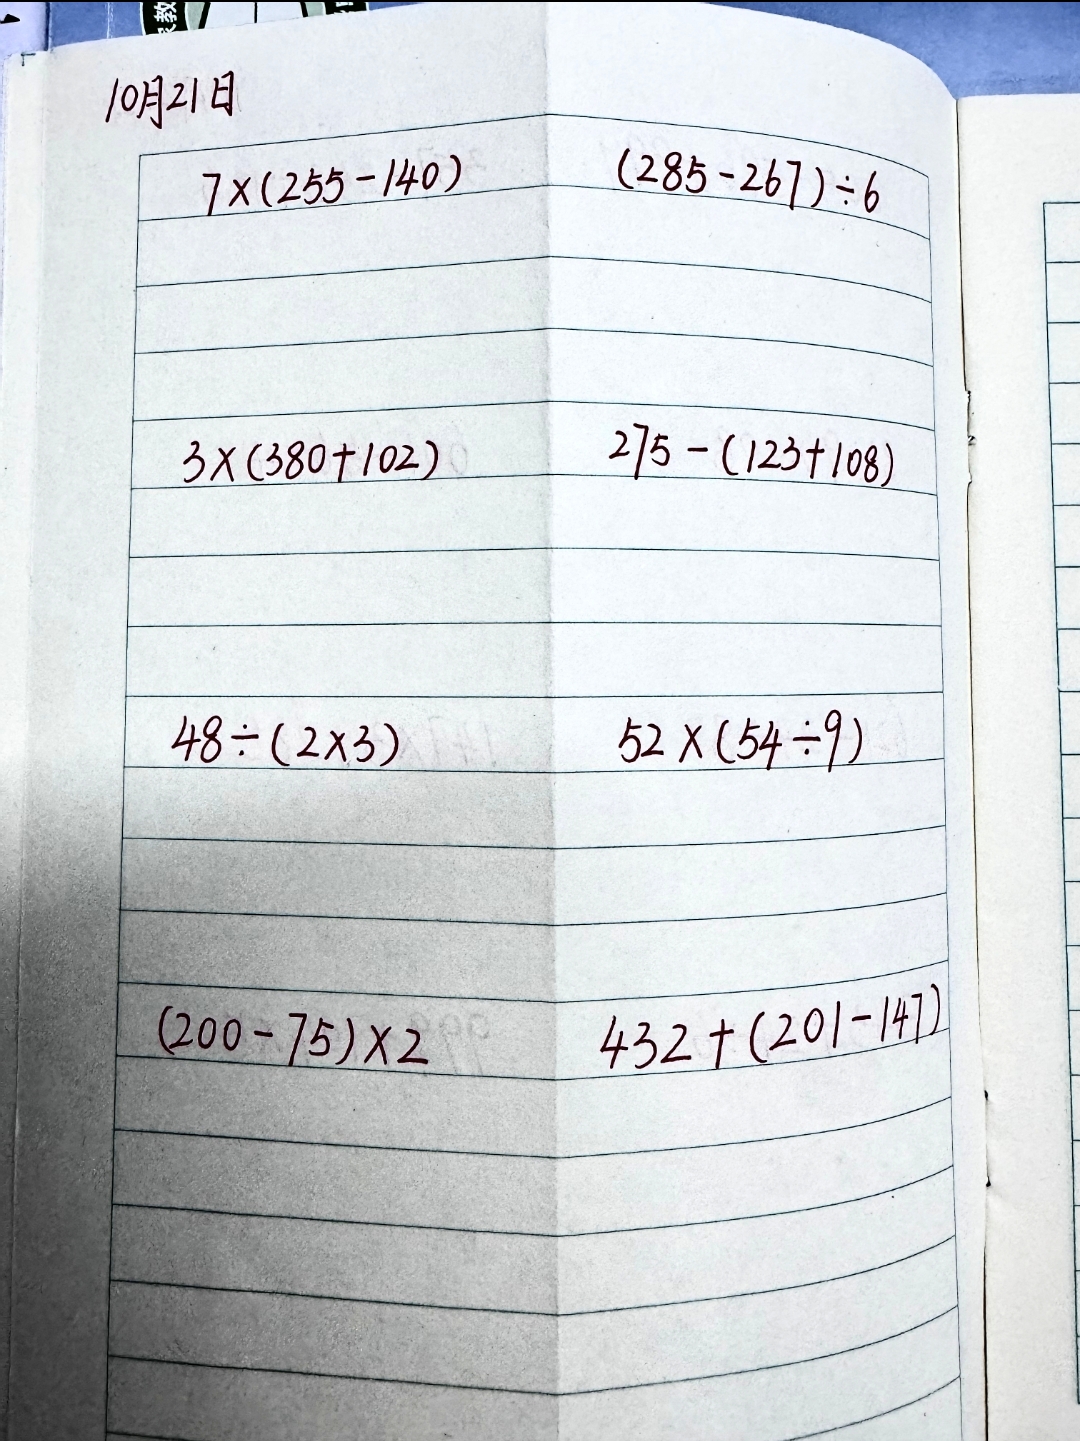 10月21日
7×(255-140) (285-267)÷6
3×(380+102) 275-(123+108)
48÷(2×3) 52×(54÷9)
(200-75)×2 432+(201-147)